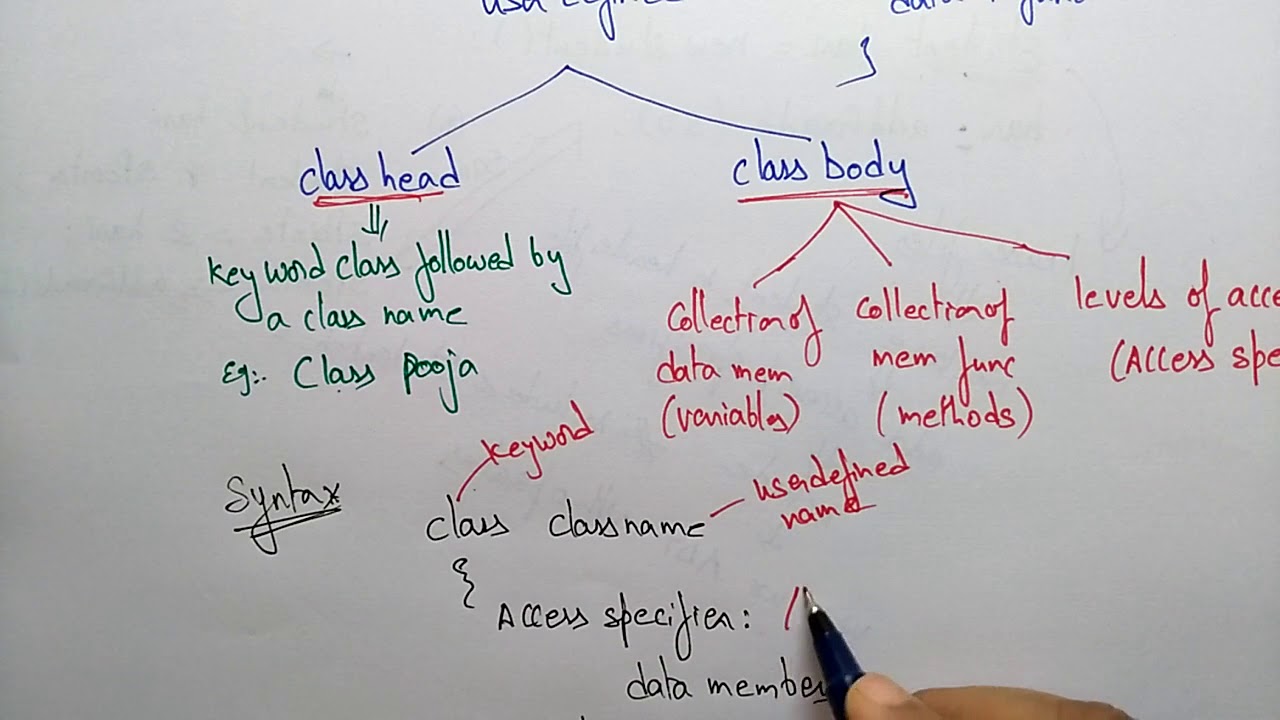 class head
class body
keyword class followed by
a class name
Eg:. Class pooja
Collection of
data mem
(variables)
collection of
mem func
(methods)
levels of acce
(Access spe
keyword
userdefined
name
Syntax
class classname
{
Access specifier: /
data member
}